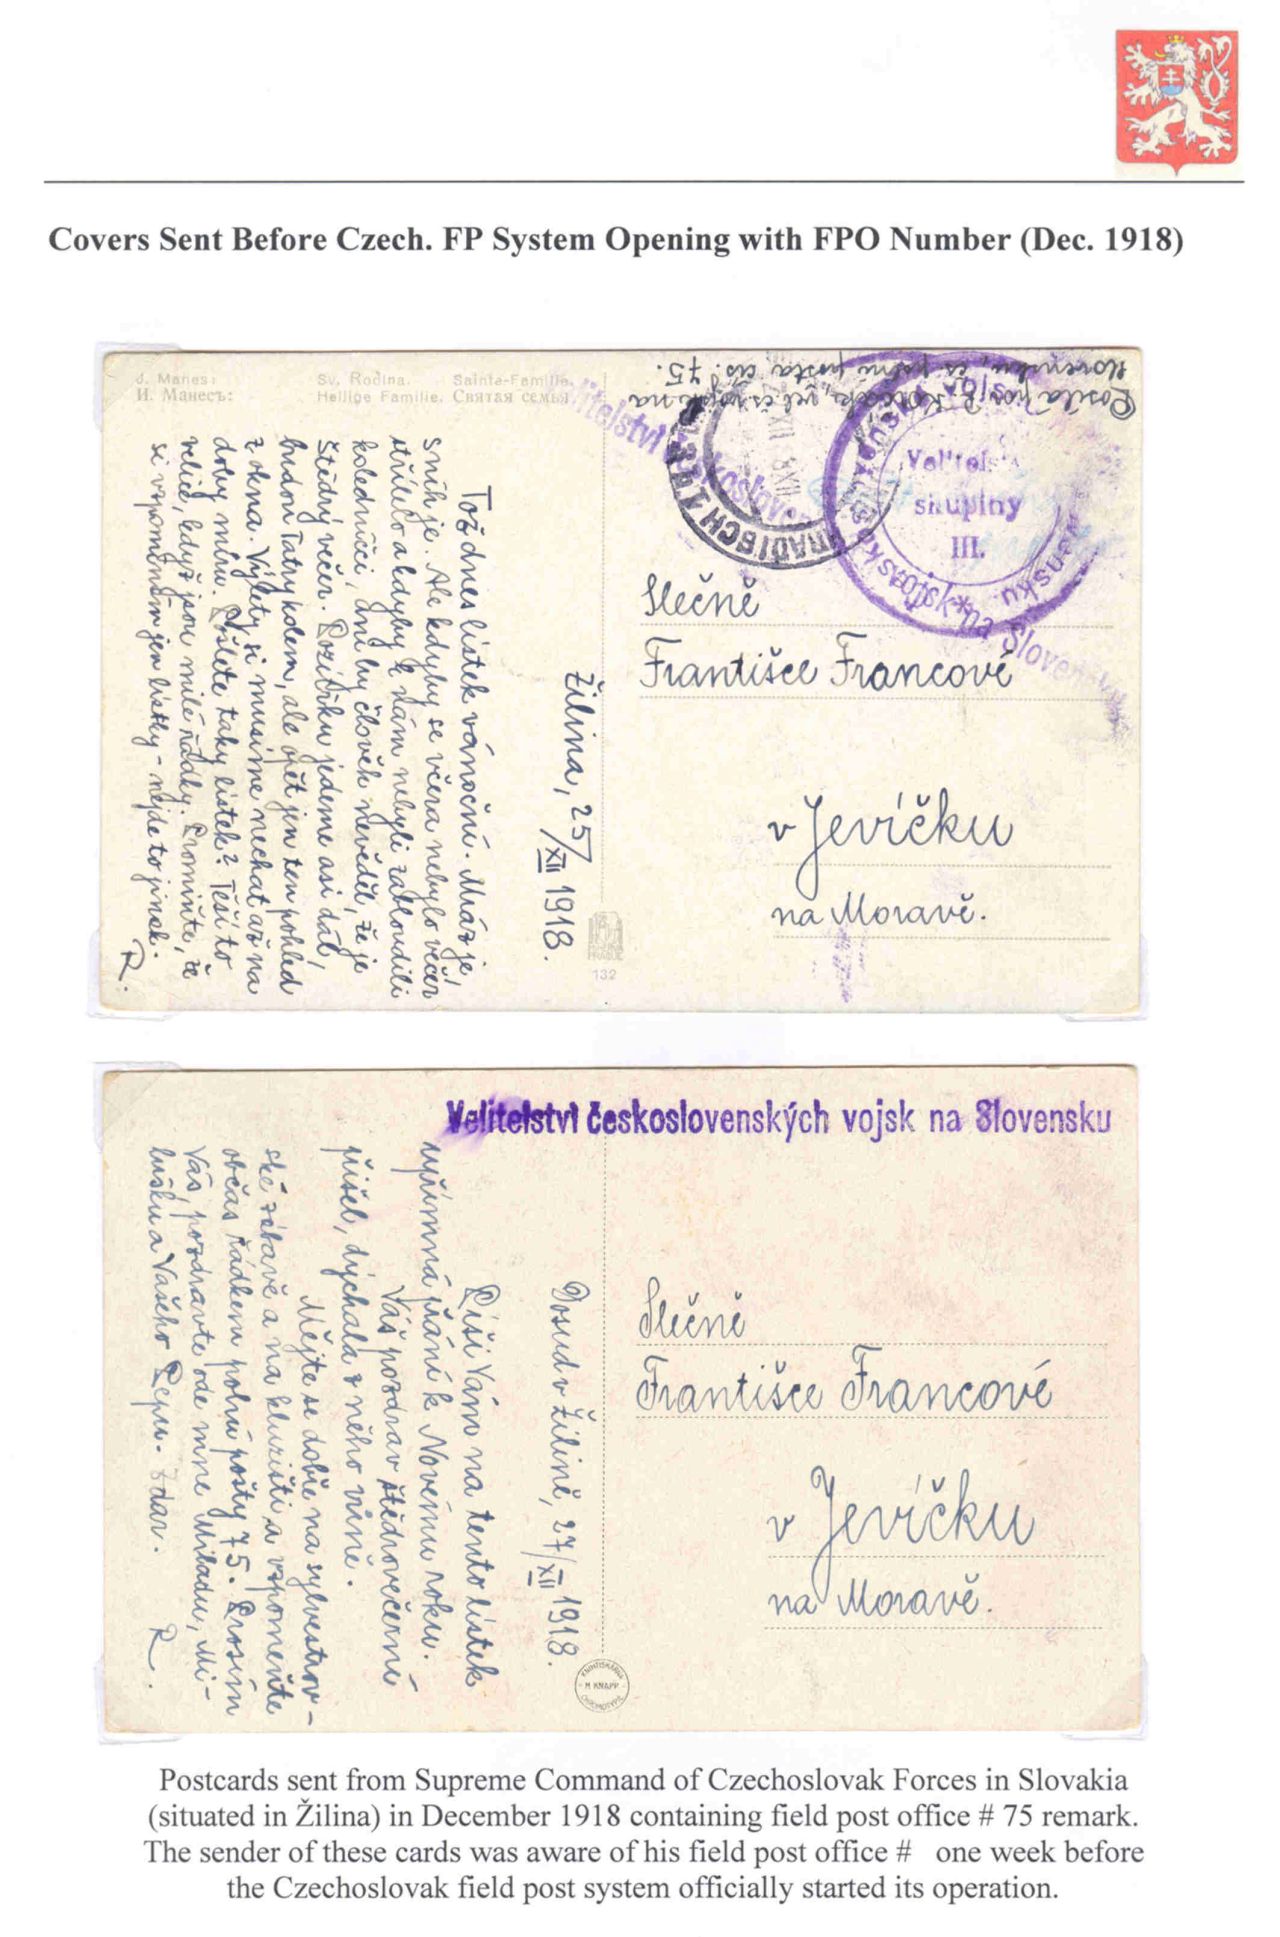 Covers Sent Before Czech. FP System Opening with FPO Number (Dec. 1918)
J. Manes:
И. Манесъ:
Sv. Rodina. Sainte-Famille.
Hellige Familie. Святая семья
Posílá por. R.
Slovensku, čs polní pošta čís. 75.
Velitelství
HRADISCH
XII 18
Velitels
skupiny
III.
vojsk na Slovensku
Slečně
Františce Francové
v Jevíčku
na Moravě.
Žilina, 25/XII 1918.
Tož dnes lístek vánoční. Mráz je,
sníh je. Ale kdyby se včera nebylo večer
střílelo a kdyby k nám nebyli zabloudili
koledníčci, ani by člověk nevěděl, že je
štědrý večer. Pozítřku jedeme asi dál,
budou Tatry kolem, ale opět jen ten pohled
z okna. Výlety si musíme nechat až na
doby míru. Pošlete taky lístek? Těší to
velice, když jsou milé řádky. Promiňte, že
si vzpomenám jen lístky - nejde to jinak.
R.
132
Velitelství československých vojsk na Slovensku
Slečně
Františce Francové
v Jevíčku
na Moravě.
Dosud v Žilině, 27/XII 1918.
Píši Vám na tento lístek
upřímná přání k Novému roku.
Váš pozdrav štědrovečerní
přišel, dýchala z něho vůně.
Mějte se dobře na sylvestrov-
ské zábavě a na kluzišti a vzpomeňte
občas řádkem polní pošty 75. Prosím
Vás, pozdravte ode mne Miladu, Mi-
lušku a Vašeho Pepu. Zdar.
R.
KNIHTISKÁRNA
M KNAPP
CHROMOTYPIE
Postcards sent from Supreme Command of Czechoslovak Forces in Slovakia
(situated in Žilina) in December 1918 containing field post office # 75 remark.
The sender of these cards was aware of his field post office # one week before
the Czechoslovak field post system officially started its operation.